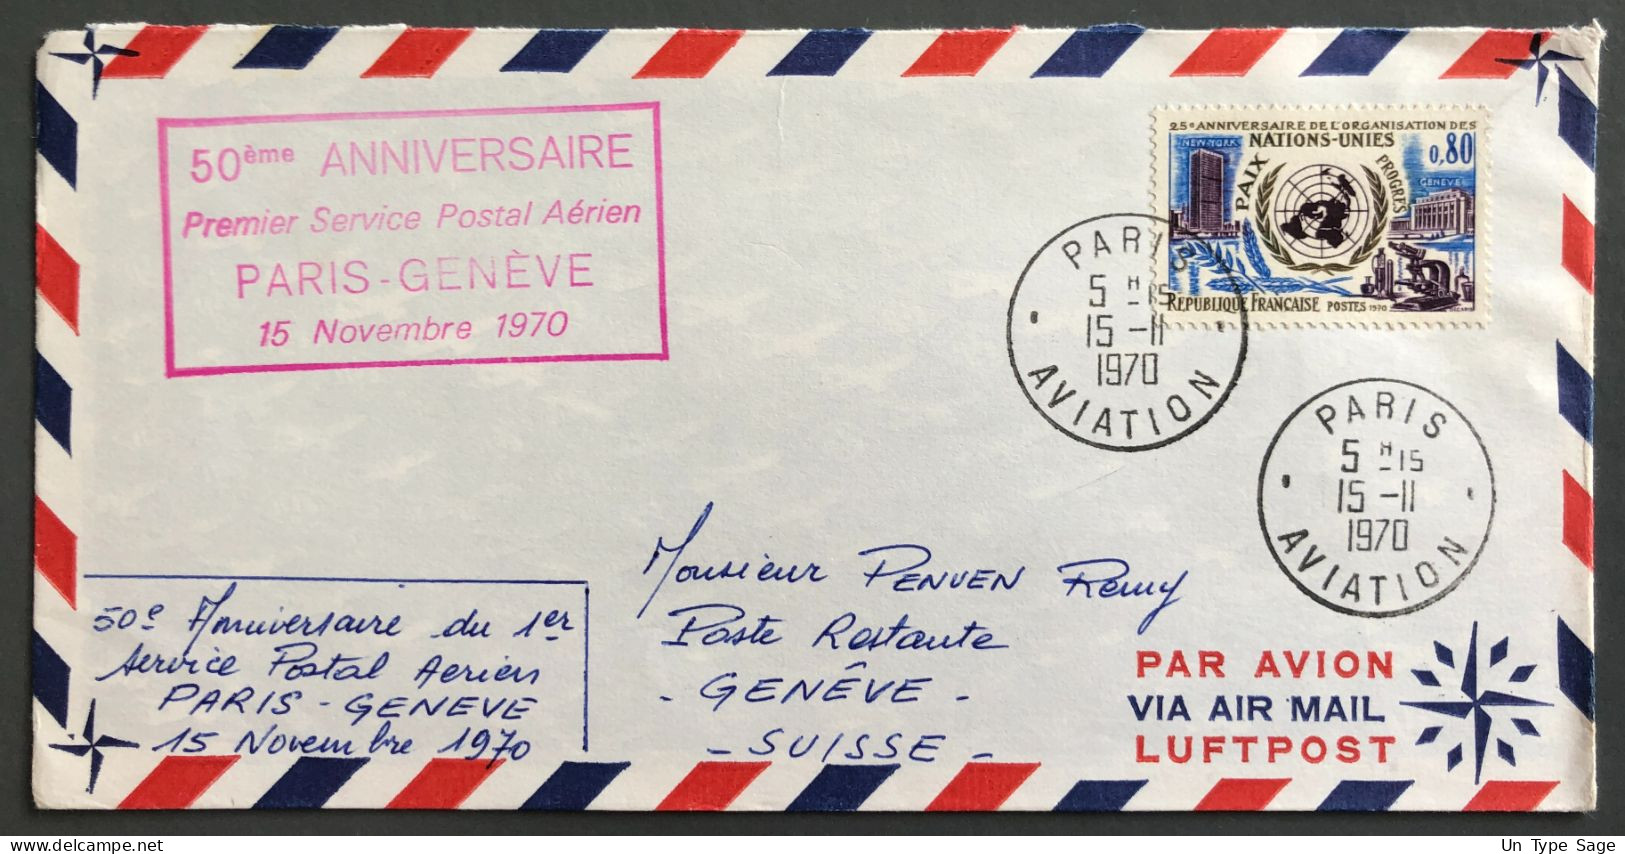 50ème ANNIVERSAIRE
Premier Service Postal Aérien
PARIS-GENÈVE
15 Novembre 1970
25e ANNIVERSAIRE DE L'ORGANISATION DES
NATIONS-UNIES
0,80
NEW-YORK
PAIX
PROGRES
GENÈVE
REPUBLIQUE FRANÇAISE POSTES 1970
PARIS
5 H 15
15 -11
1970
AVIATION
PARIS
5 H 15
15 -11
1970
AVIATION
50e Anniversaire du 1er
Service Postal Aerien
PARIS - GENEVE
15 Novembre 1970
Monsieur PENVEN Remy
Poste Restante
- GENÊVE -
- SUISSE -
PAR AVION
VIA AIR MAIL
LUFTPOST
Un Type Sage